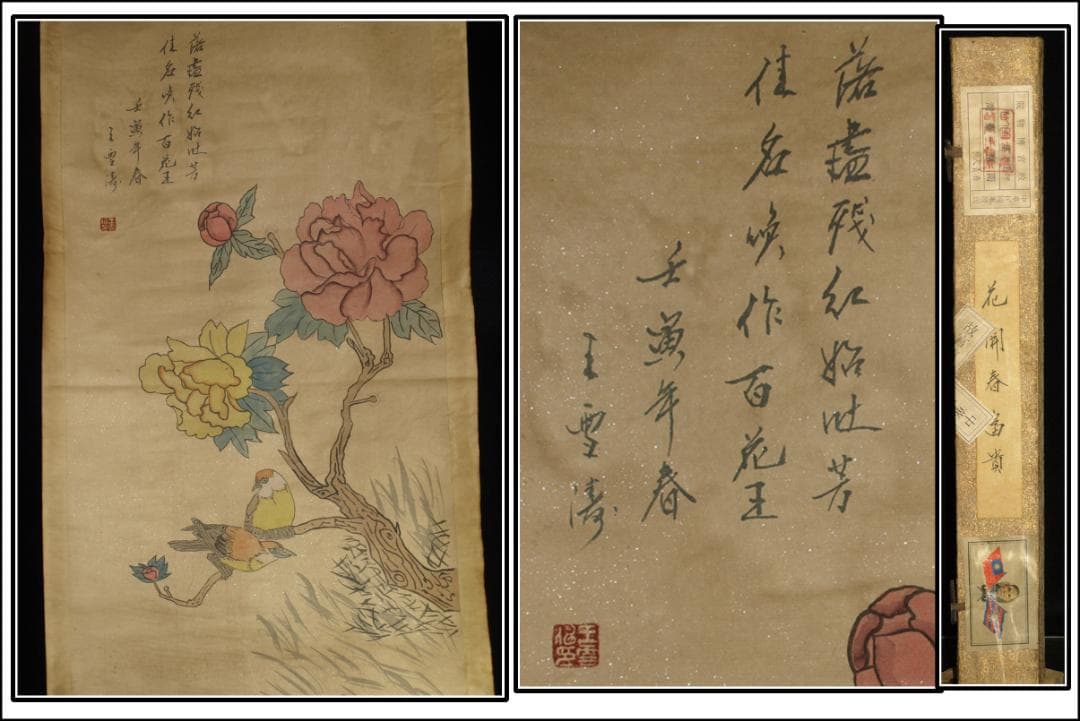 落盡殘紅始吐芳
佳名唤作百花王
壬寅年春
王雪濤
落盡殘紅始吐芳
佳名唤作百花王
壬寅年春
王雪濤
花開春富貴